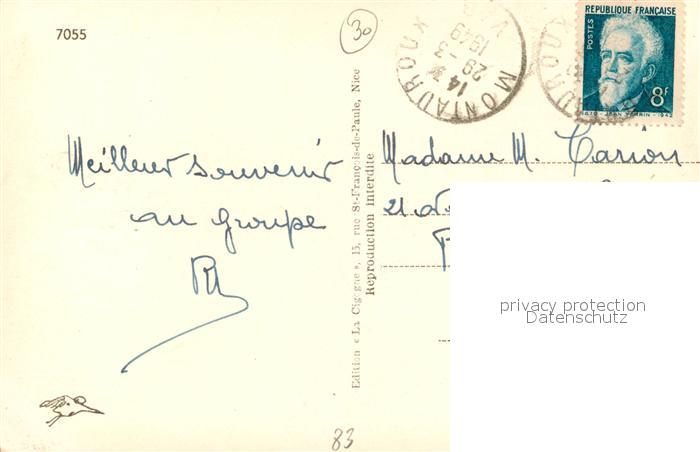 7055
30
MONTAUROUX
14 H
29 - 3
1949
VAR
REPUBLIQUE FRANÇAISE
POSTES
8f
1870 - JEAN PERRIN - 1942
Meilleur souvenir
au groupe
Edition « La Cigogne », 15, rue St-François-de-Paule, Nice
Reproduction interdite
Madame M. Carion
21
privacy protection
Datenschutz
83